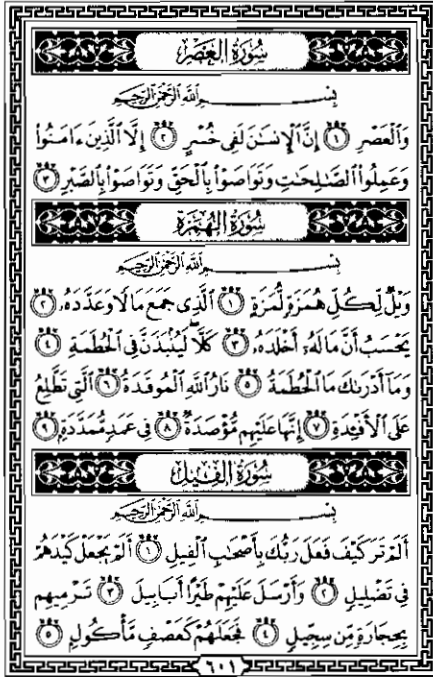 سُورَةُ العَصْرِ
بِسْمِ ٱللَّهِ ٱلرَّحْمَٰنِ ٱلرَّحِيمِ
وَٱلْعَصْرِ ١ إِنَّ ٱلْإِنسَٰنَ لَفِى خُسْرٍ ٢ إِلَّا ٱلَّذِينَ ءَامَنُوا۟
وَعَمِلُوا۟ ٱلصَّٰلِحَٰتِ وَتَوَاصَوْا۟ بِٱلْحَقِّ وَتَوَاصَوْا۟ بِٱلصَّبْرِ ٣
سُورَةُ الهُمَزَةِ
بِسْمِ ٱللَّهِ ٱلرَّحْمَٰنِ ٱلرَّحِيمِ
وَيْلٌ لِّكُلِّ هُمَزَةٍ لُّمَزَةٍ ١ ٱلَّذِى جَمَعَ مَالًا وَعَدَّدَهُۥ ٢
يَحْسَبُ أَنَّ مَالَهُۥٓ أَخْلَدَهُۥ ٣ كَلَّا ۖ لَيُنۢبَذَنَّ فِى ٱلْحُطَمَةِ ٤
وَمَآ أَدْرَىٰكَ مَا ٱلْحُطَمَةُ ٥ نَارُ ٱللَّهِ ٱلْمُوقَدَةُ ٦ ٱلَّتِى تَطَّلِعُ
عَلَى ٱلْأَفْـِٔدَةِ ٧ إِنَّهَا عَلَيْهِم مُّؤْصَدَةٌ ٨ فِى عَمَدٍ مُّمَدَّدَةٍۭ ٩
سُورَةُ الفِيلِ
بِسْمِ ٱللَّهِ ٱلرَّحْمَٰنِ ٱلرَّحِيمِ
أَلَمْ تَرَ كَيْفَ فَعَلَ رَبُّكَ بِأَصْحَٰبِ ٱلْفِيلِ ١ أَلَمْ يَجْعَلْ كَيْدَهُمْ
فِى تَضْلِيلٍ ٢ وَأَرْسَلَ عَلَيْهِمْ طَيْرًا أَبَابِيلَ ٣ تَرْمِيهِم
بِحِجَارَةٍ مِّن سِجِّيلٍ ٤ فَجَعَلَهُمْ كَعَصْفٍ مَّأْكُولٍۭ ٥
٦٠١